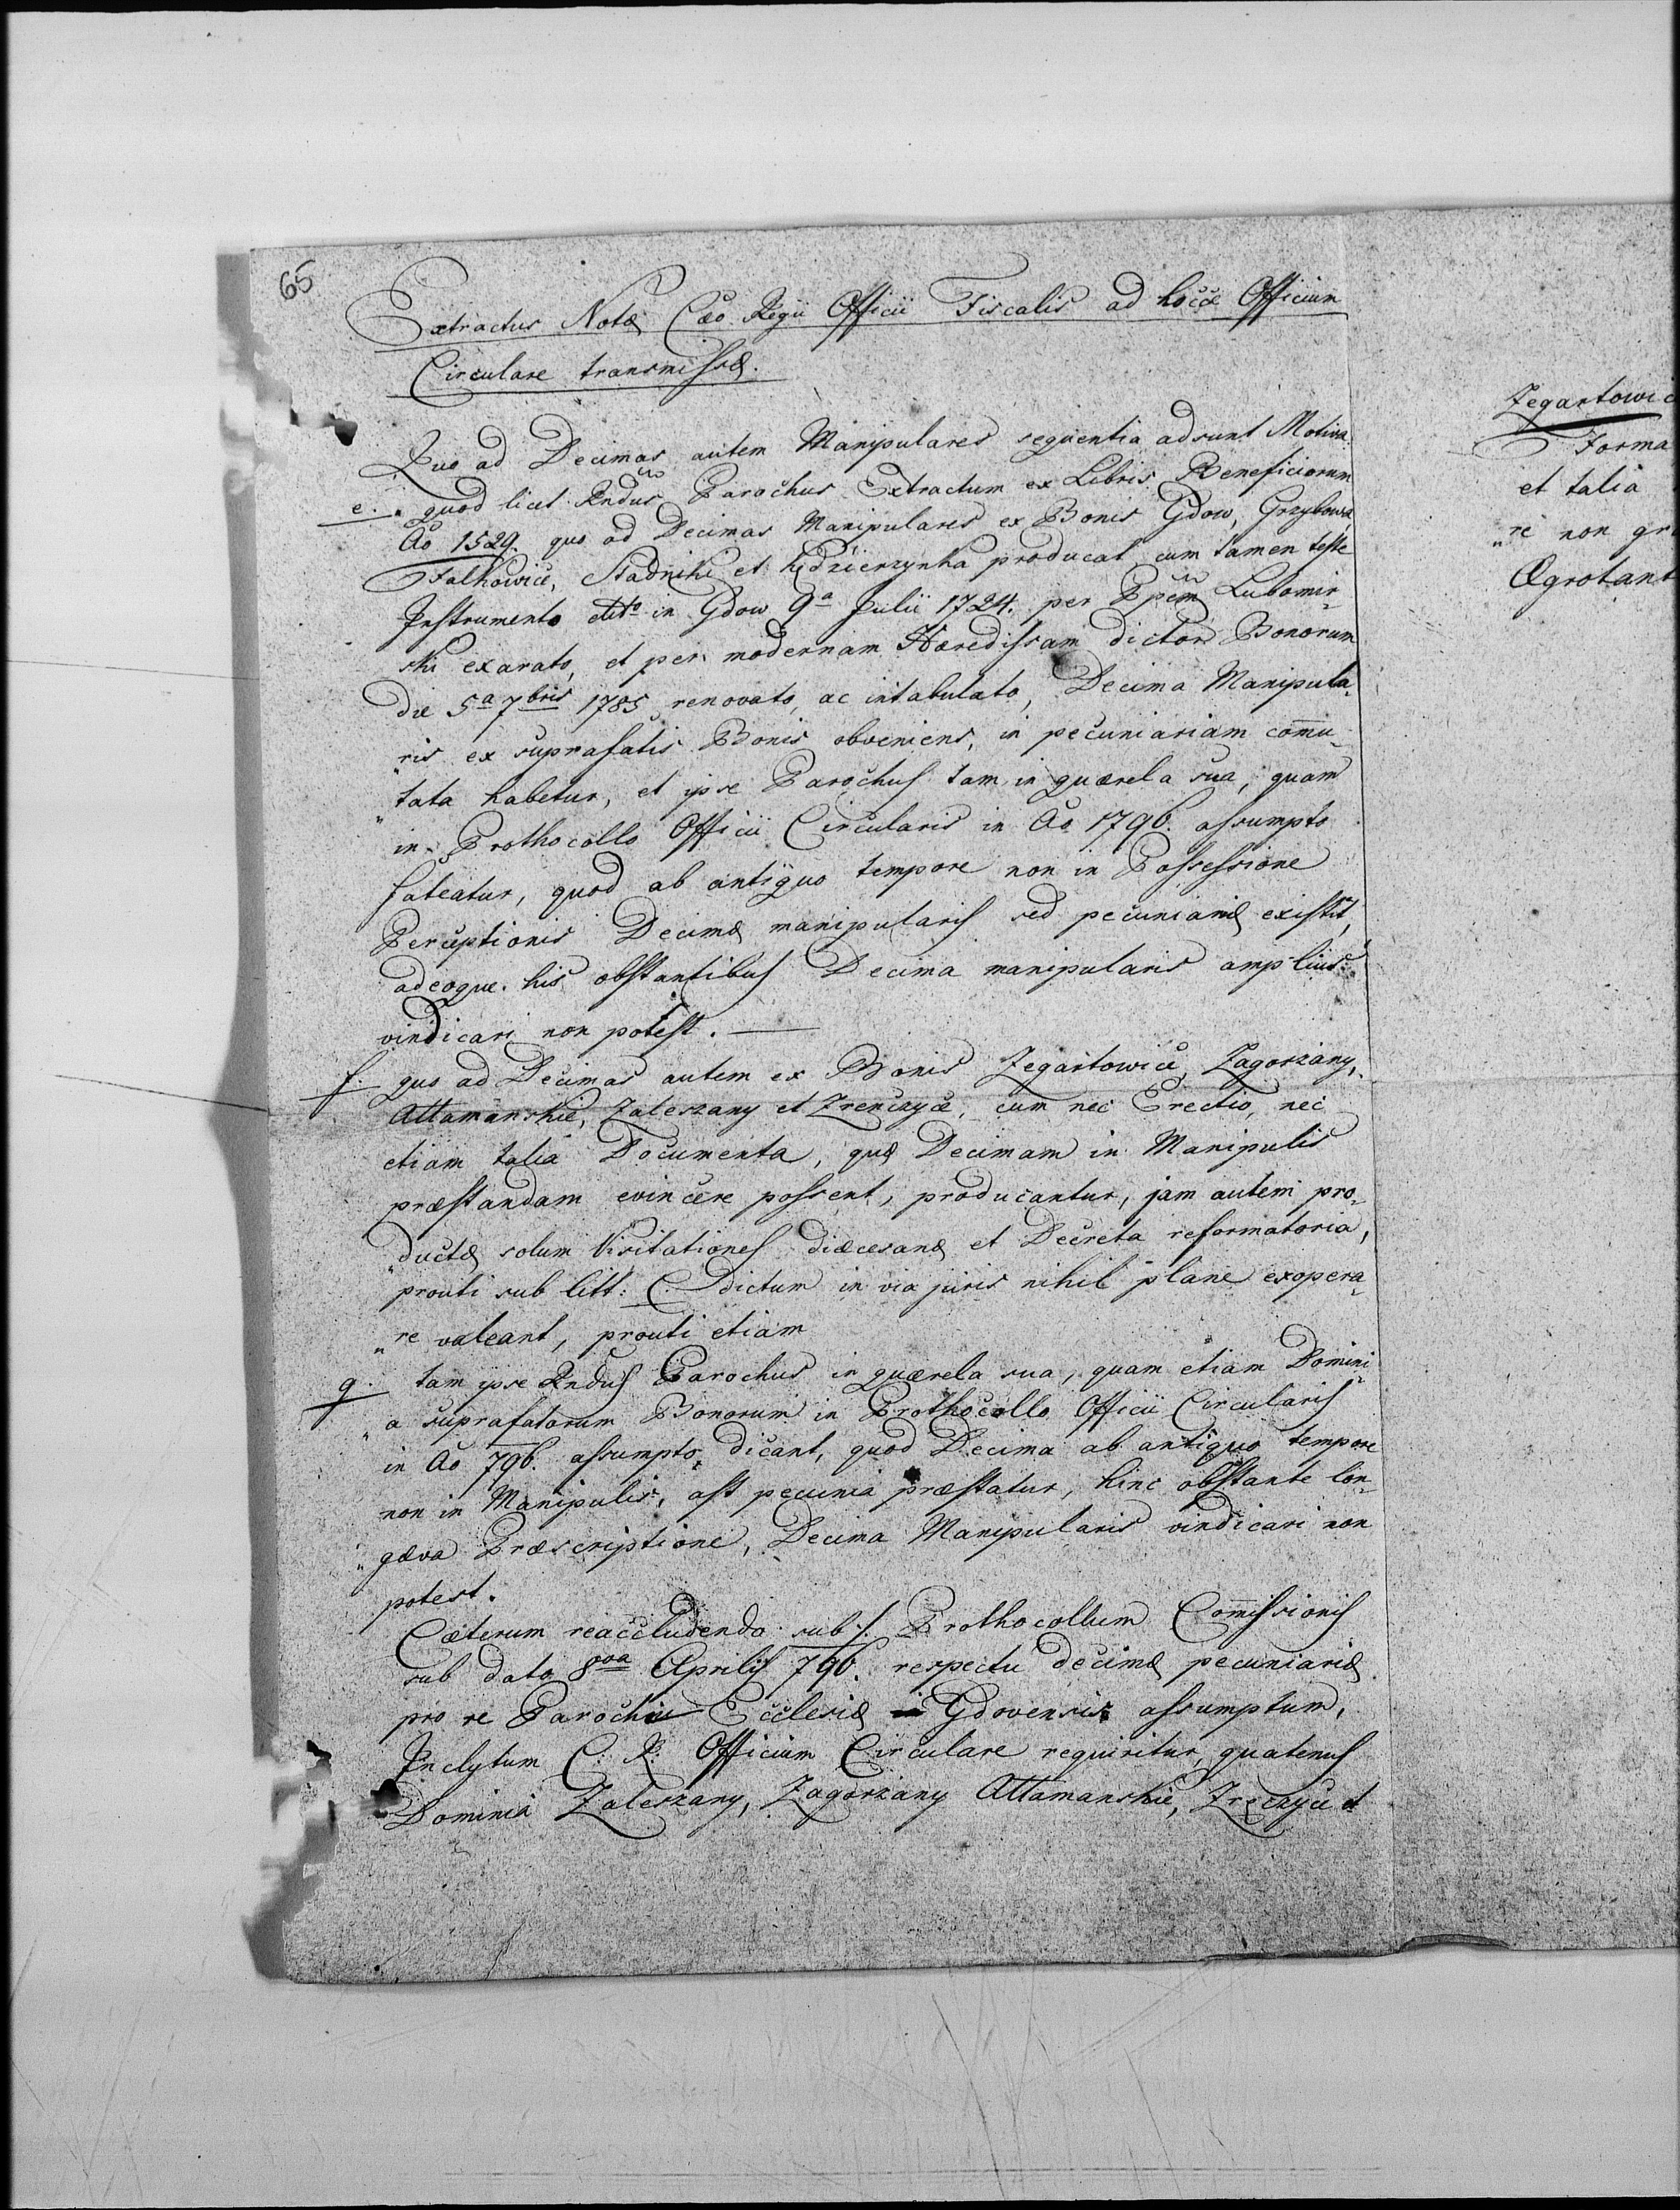 65
Extractus Notæ Cæo Regii Officii Fiscalis ad hocce Officium
Circulare transmissæ.
Quo ad Decimas autem Manipulares sequentia adsunt Motiva.
e. quod licet Rndus Parochus Extractum ex Libris Beneficiorum
Ao 1529. quo ad Decimas Manipulares ex Bonis Gdow, Grzybowa,
Falkowice, Stadniki et Kdzierzynka producat cum tamen teste
Instrumento dtto in Gdow 9a Julii 1724. per Ppem Lubomir-
ski exarato, et per modernam Hæredissam dictor Bonorum
die 5a 7bris 1785 renovato, ac intabulato, Decima Manipula-
"ris ex suprafatis Bonis obveniens, in pecuniariam comu-
"tata habetur, et ipse Parochus tam in quærela sua, quam
in Prothocollo Officii Circularis in Ao 1796. assumpto
fateatur, quod ab antiquo tempore non in Possessione
Perceptionis Decimæ manipularis sed pecuniariæ existit,
adeoque his obstantibus Decima manipularis amplius
vindicari non potest. —
f. quo ad Decimas autem ex Bonis Zegartowice, Zagorzany,
Attamanskie, Zaleszany et Zrenczyce, cum nec Erectio, nec
etiam talia Documenta, quæ Decimam in Manipulis
præstandam evincere possent, producantur, jam autem pro-
"ductæ solum Visitationes diæcesanæ et Decreta reformatoria,
prouti sub litt: C. dictum in via juris nihil plane exopera-
"re valeant, prouti etiam
g. tam ipse Rndus Parochus in quærela sua, quam etiam Domini-
"a suprafatorum Bonorum in Prothocollo Officii Circularis
in Ao 796. assumpto, dicant, quod Decima ab antiquo tempore
non in Manipulis, ast pecunia præstatur, hinc obstante lon-
"gæva Præscriptione, Decima Manipularis vindicari non
potest.
Cæterum reaccludendo sub ./. Prothocollum Comissionis
sub dato 8va Aprilis 796. respectu decimæ pecuniariæ
pro re Parochiæ Ecclesiæ Gdovensis assumptum,
Inclytum C. R. Officium Circulare requiritur, quatenus
Dominia Zaleszany, Zagorzany Attamanskie, Zręczyce et
Zegartowic
Forma
et talia
"re non gr
Ægrotant